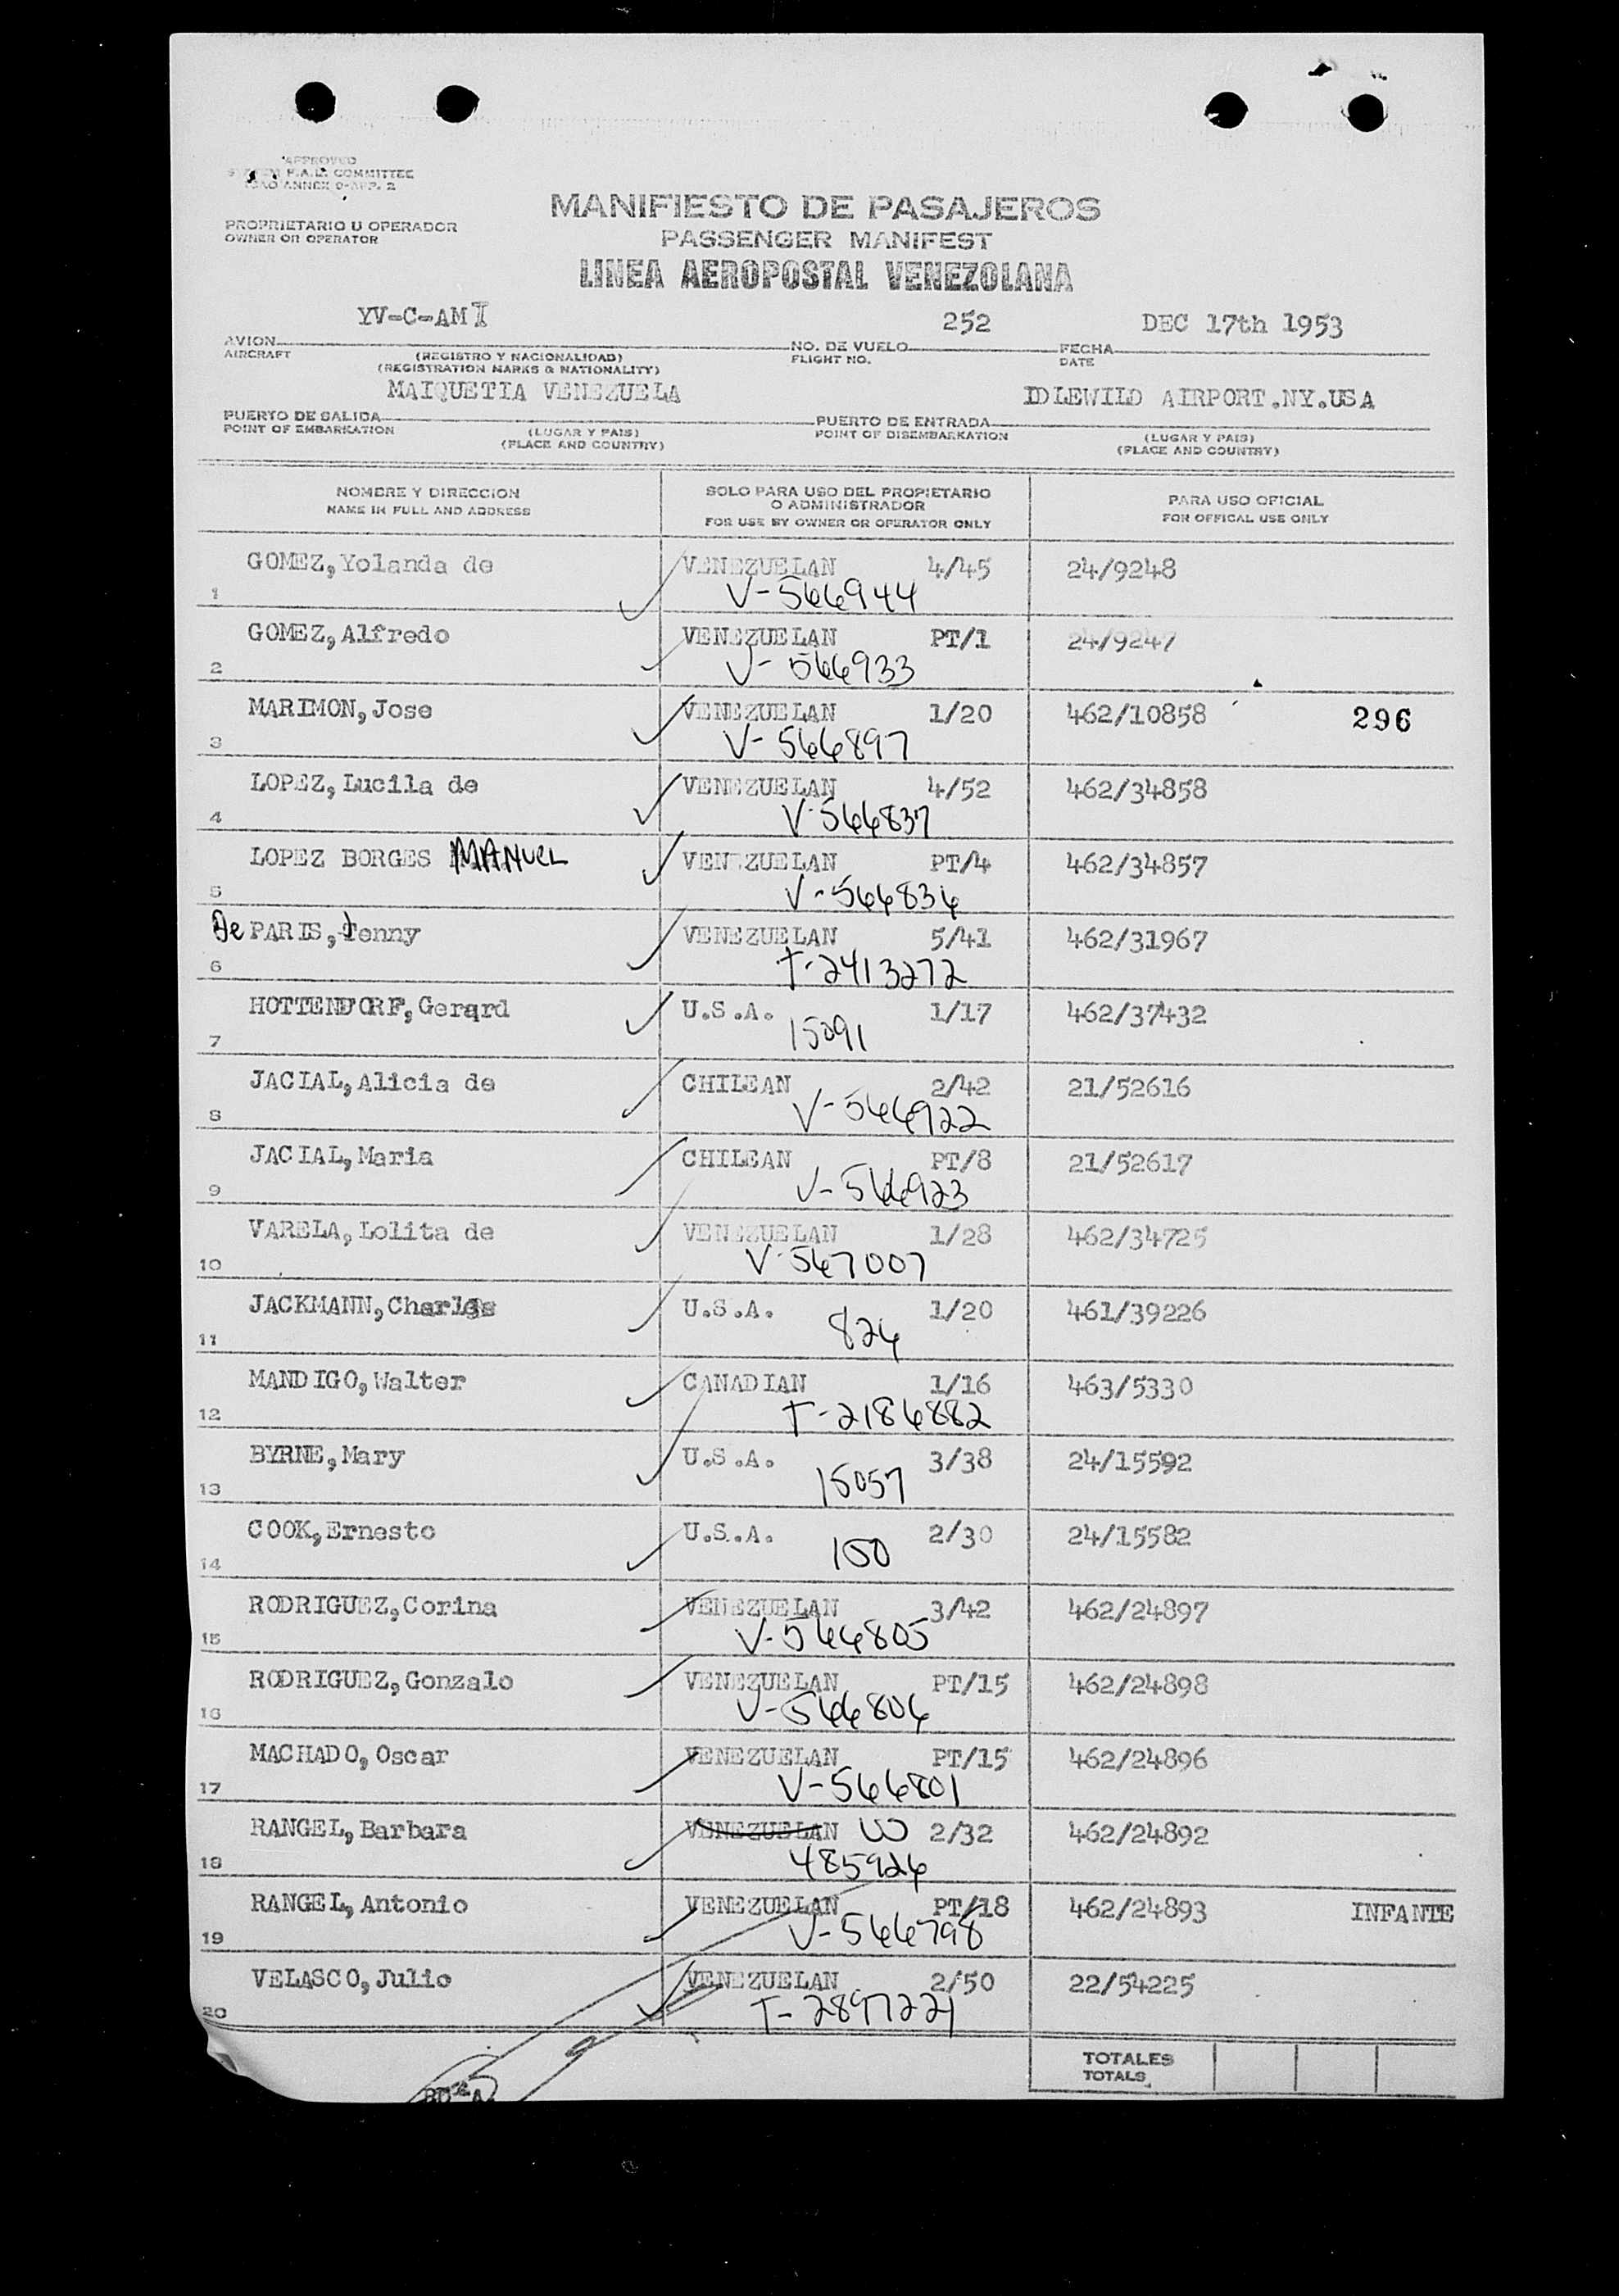 APPROVED
F.A.L. COMMITTEE
ICAO ANNEX 9-APP. 2
MANIFIESTO DE PASAJEROS
PROPRIETARIO U OPERADOR
OWNER OR OPERATOR
PASSENGER MANIFEST
LINEA AEROPOSTAL VENEZOLANA
YV-C-AMI 252 DEC 17th 1953
AVION NO. DE VUELO FECHA
AIRCRAFT (REGISTRO Y NACIONALIDAD) FLIGHT NO. DATE
(REGISTRATION MARKS & NATIONALITY)
MAIQUETIA VENEZUELA IDLEWILD AIRPORT.NY.USA
PUERTO DE SALIDA PUERTO DE ENTRADA
POINT OF EMBARKATION (LUGAR Y PAIS) POINT OF DISEMBARKATION (LUGAR Y PAIS)
(PLACE AND COUNTRY) (PLACE AND COUNTRY)
NOMBRE Y DIRECCION SOLO PARA USO DEL PROPIETARIO PARA USO OFICIAL
O ADMINISTRADOR
NAME IN FULL AND ADDRESS FOR USE BY OWNER OR OPERATOR ONLY FOR OFFICAL USE ONLY
GOMEZ, Yolanda de VENEZUELAN 4/45 24/9248
1 V-566944
GOMEZ, Alfredo VENEZUELAN PT/1 24/9247
2 V-566933
MARIMON, Jose VENEZUELAN 1/20 462/10858 296
3 V-566897
LOPEZ, Lucila de VENEZUELAN 4/52 462/34858
4 V-566837
LOPEZ BORGES MANUEL VENEZUELAN PT/4 462/34857
5 V-566836
De PARIS, Jenny VENEZUELAN 5/41 462/31967
6 T-2413272
HOTTENDORF, Gerard U.S.A. 1/17 462/37432
7 15091
JACIAL, Alicia de CHILEAN 2/42 21/52616
8 V-566922
JACIAL, Maria CHILEAN PT/8 21/52617
9 V-566923
VARELA, Lolita de VENEZUELAN 1/28 462/34725
10 V-567007
JACKMANN, Charles U.S.A. 1/20 461/39226
11 826
MANDIGO, Walter CANADIAN 1/16 463/5330
12 T-2186882
BYRNE, Mary U.S.A. 3/38 24/15592
13 15057
COOK, Ernesto U.S.A. 2/30 24/15582
14 150
RODRIGUEZ, Corina VENEZUELAN 3/42 462/24897
15 V-566805
RODRIGUEZ, Gonzalo VENEZUELAN PT/15 462/24898
16 V-566806
MACHADO, Oscar VENEZUELAN PT/15 462/24896
17 V-566801
RANGEL, Barbara VENEZUELAN 2/32 462/24892
18 485926
RANGEL, Antonio VENEZUELAN PT/18 462/24893 INFANTE
19 V-566798
VELASCO, Julio VENEZUELAN 2/50 22/54225
20 T-2897221
TOTALES
TOTALS